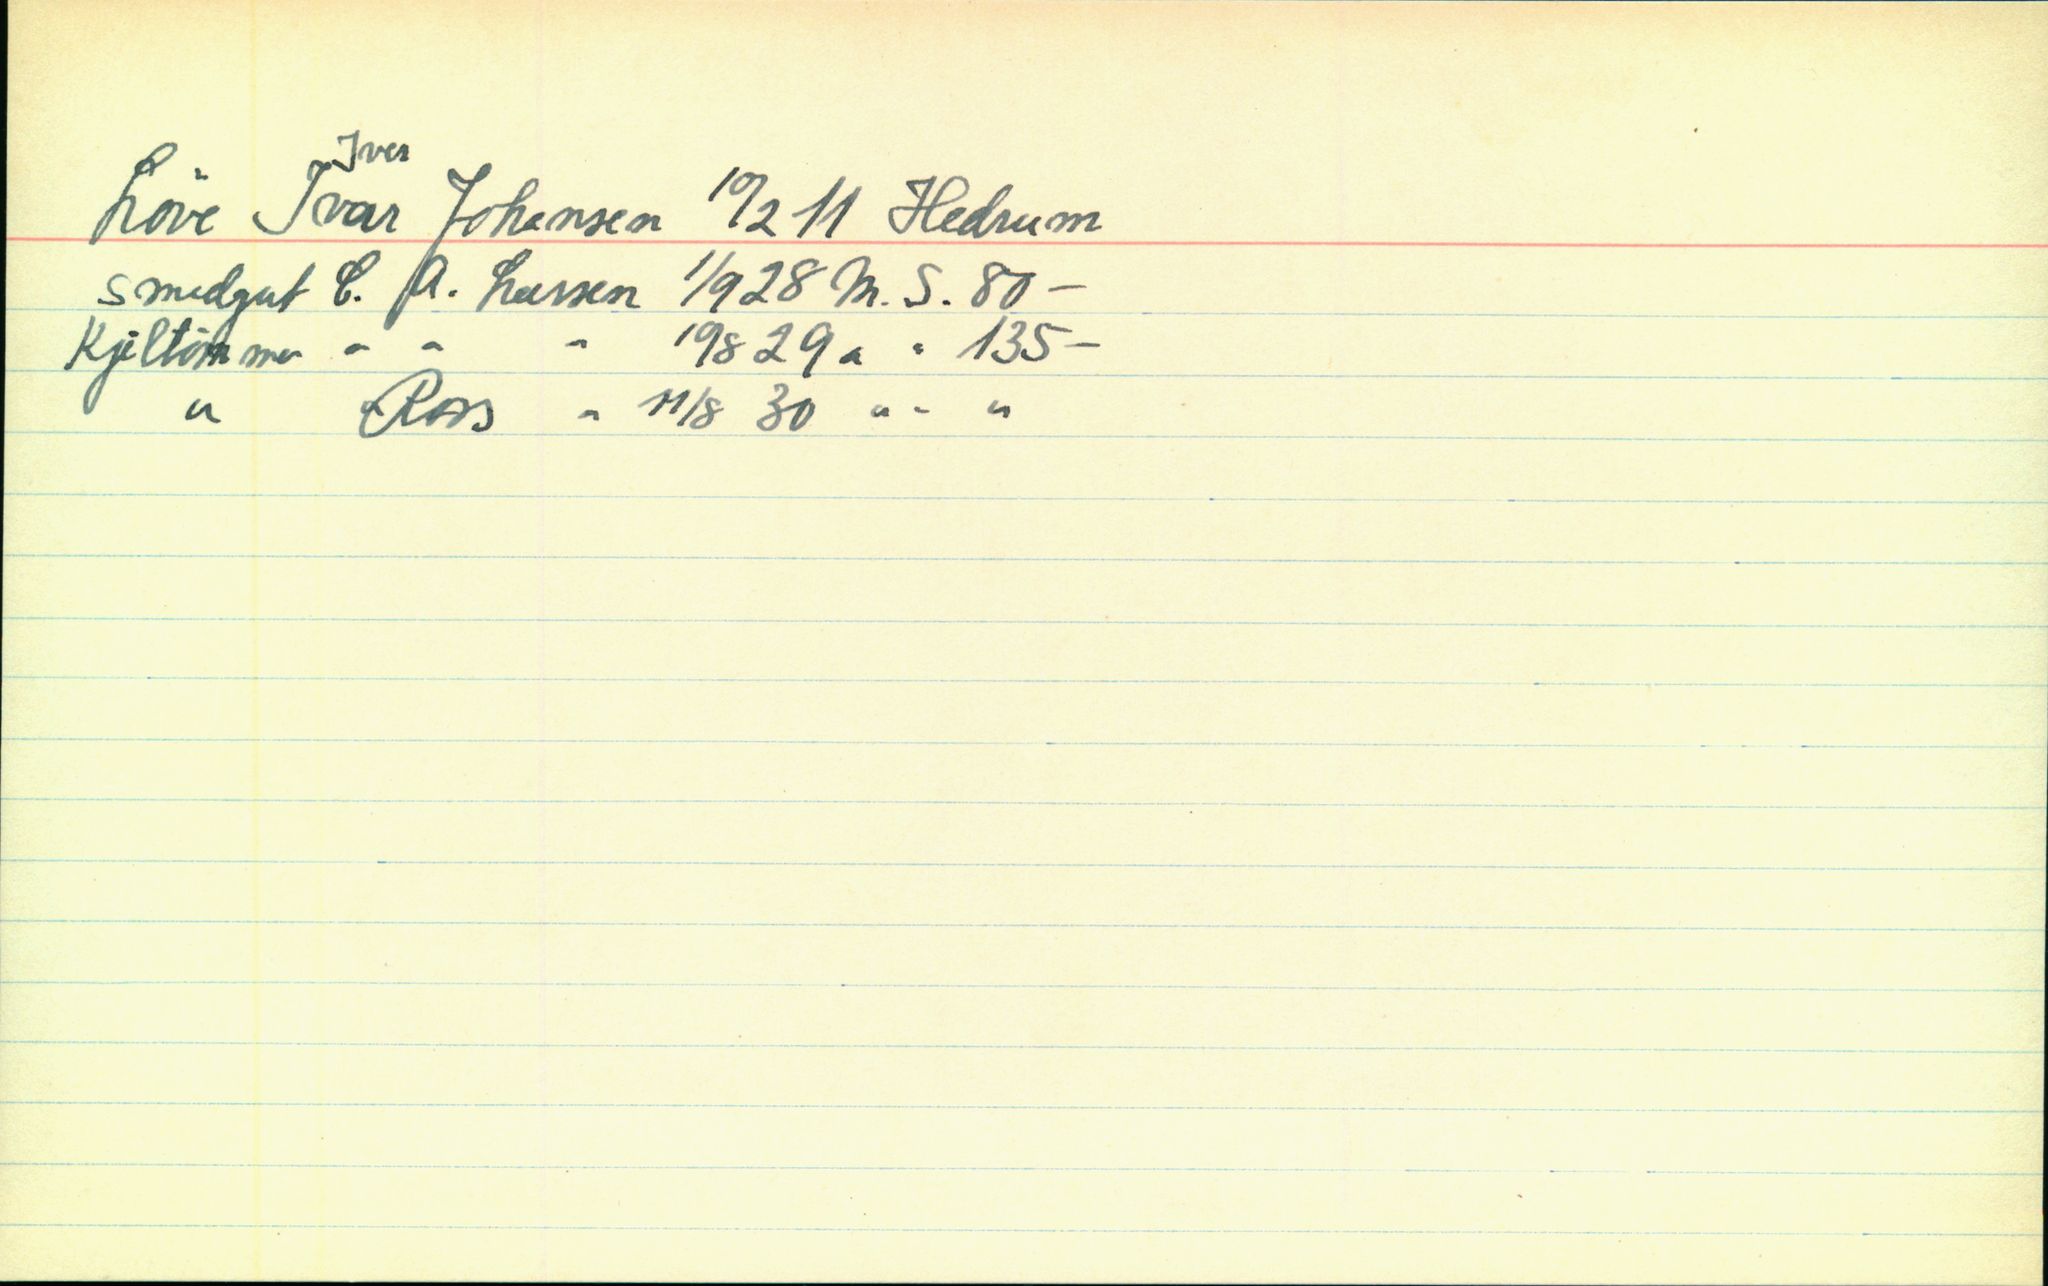 Iver
Löve Ivar Johansen 10/2 11 Hedrum
smedgut C. A. Larsen 1/9 28 M. S. 80 –
Kjeltömmer " " " 19/8 29 " " 135 –
" Ross " 11/8 30 " " "